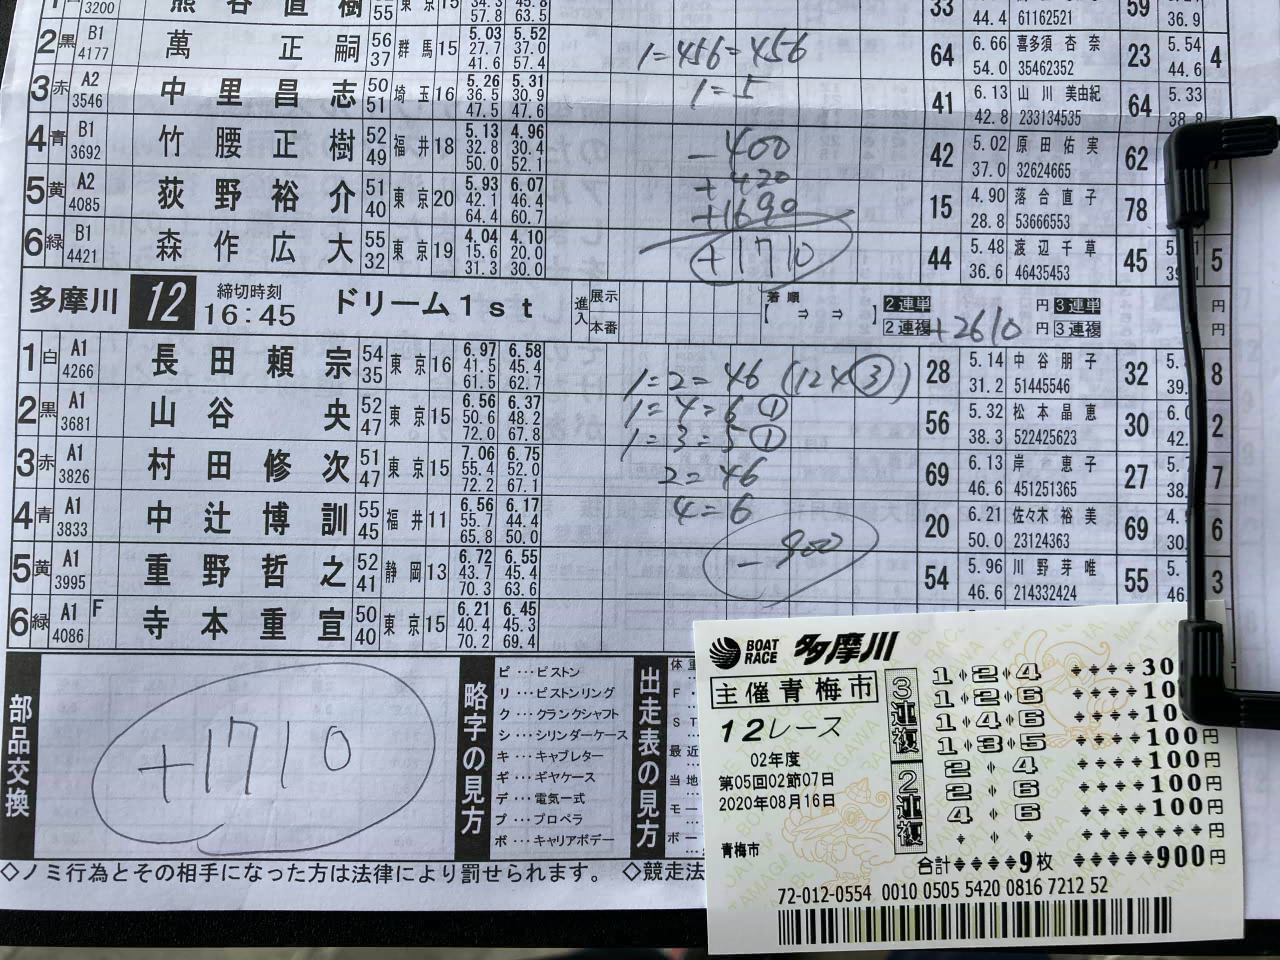 3200 熊谷直樹 55 東京 15 34.3 45.8 57.8 63.5 33 44.4 61162521 59 36.9
2 黒 B1 4177 萬正嗣 56 37 群馬 15 5.03 5.52 27.7 37.0 41.6 57.4 64 6.66 54.0 喜多須杏奈 35462352 23 5.54 44.6 4
1=456=456
3 赤 A2 3546 中里昌志 50 51 埼玉 16 5.26 5.31 36.5 30.9 47.5 47.6 41 6.13 42.8 山川美由紀 233134535 64 5.33 38.8
1=5
4 青 B1 3692 竹腰正樹 52 49 福井 18 5.13 4.96 32.8 30.4 50.0 52.1 42 5.02 37.0 原田佑実 32624665 62
-400
5 黄 A2 4085 荻野裕介 51 40 東京 20 5.93 6.07 42.1 46.4 64.4 60.7 15 4.90 28.8 落合直子 53666553 78
+420
+1690
6 緑 B1 4421 森作広大 55 32 東京 19 4.04 4.10 15.6 20.0 31.3 30.0 44 5.48 36.6 渡辺千草 46435453 45 5
+1710
多摩川 12 締切時刻 16:45 ドリーム1st 進入 展示 本番 着順 【 ⇒ ⇒ 】 2連単 円 3連単 円
2連複 円 3連複 円
+2610
1 白 A1 4266 長田頼宗 54 35 東京 16 6.97 6.58 41.5 45.4 61.5 62.7 28 5.14 31.2 中谷朋子 51445546 32 8
1=2=46 (124③)
2 黒 A1 3681 山谷央 52 47 東京 15 6.56 6.37 50.6 48.2 72.0 67.8 56 5.32 38.3 松本晶恵 522425623 30 2
1=4=6 ①
3 赤 A1 3826 村田修次 51 47 東京 15 7.06 6.75 55.4 52.0 72.2 67.1 69 6.13 46.6 岸恵子 451251365 27 7
1=3=5 ①
2=46
4 青 A1 3833 中辻博訓 55 45 福井 11 6.56 6.17 55.7 44.4 65.8 50.0 20 6.21 50.0 佐々木裕美 23124363 69 6
4=6
5 黄 A1 3995 重野哲之 52 41 静岡 13 6.72 6.55 43.7 45.4 70.3 63.6 54 5.96 46.6 川野芽唯 214332424 55 3
-900
6 緑 A1 4086 F 寺本重宣 50 40 東京 15 6.21 6.45 40.4 45.3 70.2 69.4
部品交換
+1710
略字の見方
ピ…ピストン
リ…ピストンリング
ク…クランクシャフト
シ…シリンダーケース
キ…キャブレター
ギ…ギヤケース
デ…電気一式
プ…プロペラ
ボ…キャリアボデー
出走表の見方
◇ノミ行為とその相手になった方は法律により罰せられます。 ◇競走法
BOAT RACE 多摩川
主催青梅市
12レース
02年度
第05回02節07日
2020年08月16日
青梅市
3連複
1 2 4 300
1 2 6 100
1 4 6 100
1 3 5 100円
2連複
2 4 100円
2 6 100円
4 6 100円
円
合計 9枚 900円
72-012-0554 0010 0505 5420 0816 7212 52